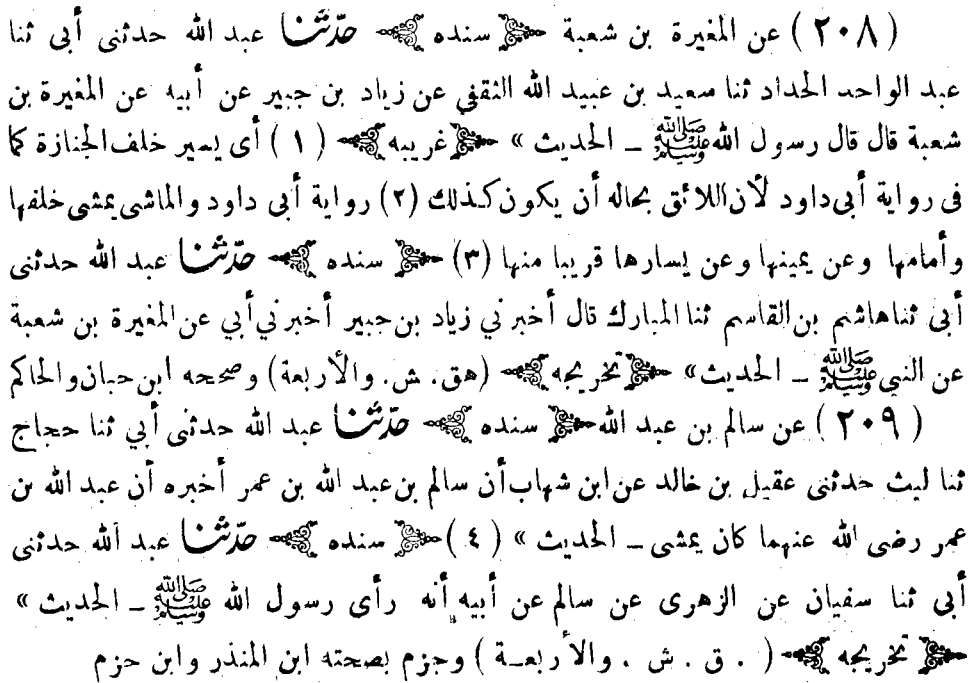 (٢٠٨) عن المغيرة بن شعبة ﴿ سنده ﴾ حدّثنا عبد الله حدثنى أبى ثنا
عبد الواحد الحداد ثنا سعيد بن عبيد الله الثقفي عن زياد بن جبير عن أبيه عن المغيرة بن
شعبة قال قال رسول الله ﷺ ـ الحديث » ﴿ غريبه ﴾ (١) أى يسير خلف الجنازة كما
فى رواية أبى داود لأن اللائق بحاله أن يكون كذلك (٢) رواية أبى داود والماشى يمشى خلفها
وأمامها وعن يمينها وعن يسارها قريبا منها (٣) ﴿ سنده ﴾ حدّثنا عبد الله حدثنى
أبى ثنا هاشم بن القاسم ثنا المبارك قال أخبرني زياد بن جبير أخبرني أبي عن المغيرة بن شعبة
عن النبي ﷺ ـ الحديث» ﴿ تخريجه ﴾ (هق. ش. والأربعة) وصححه ابن حبان والحاكم
(٢٠٩) عن سالم بن عبد الله ﴿ سنده ﴾ حدّثنا عبد الله حدثنى أبي ثنا حجاج
ثنا ليث حدثنى عقيل بن خالد عن ابن شهاب أن سالم بن عبد الله بن عمر أخبره أن عبد الله بن
عمر رضى الله عنهما كان يمشى ـ الحديث » (٤) ﴿ سنده ﴾ حدّثنا عبد الله حدثنى
أبى ثنا سفيان عن الزهرى عن سالم عن أبيه أنه رأى رسول الله ﷺ ـ الحديث »
﴿ تخريجه ﴾ ( . ق . ش . والأربعـة ) وجزم بصحته ابن المنذر وابن حزم